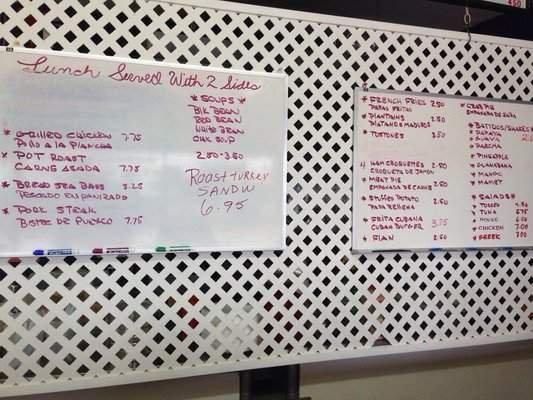 Lunch Served With 2 Sides
* SOUPS *
BLK BEAN
RED BEAN
WHITE BEAN
CHK SOUP
2.50-3.50
* GRILLED CHICKEN 7.75
POLLO A LA PLANCHA
* POT ROAST
CARNE ASADA 7.75
* BREAD SEA BASS 8.25
PESCADO EMPANIZADO
* PORK STEAK
BISTEC DE PUERCO 7.75
ROAST TURKEY
SANDW
6.95
* FRENCH FRIES 2.50
PAPAS FRITAS
* PLANTAINS 2.50
PLATANOS MADUROS
* TOSTONES 3.50
* HAM CROQUETTES 2.50
CROQUETA DE JAMON
* MEAT PIE 2.50
EMPANADA DE CARNE
* STUFFED POTATO 2.50
PAPA RELLENA
* FRITA CUBANA
CUBAN BURGER 3.75
* FLAN 2.50
* BATIDOS/SHAKES
* PAPAYA
* GUAVA
* PINEAPPLE
* GUANABANA
* MANGO
* MAMEY
* SALADS *
* TOSSED
* TUNA
* HOUSE
* CHICKEN 7.00
* GREEK 7.00